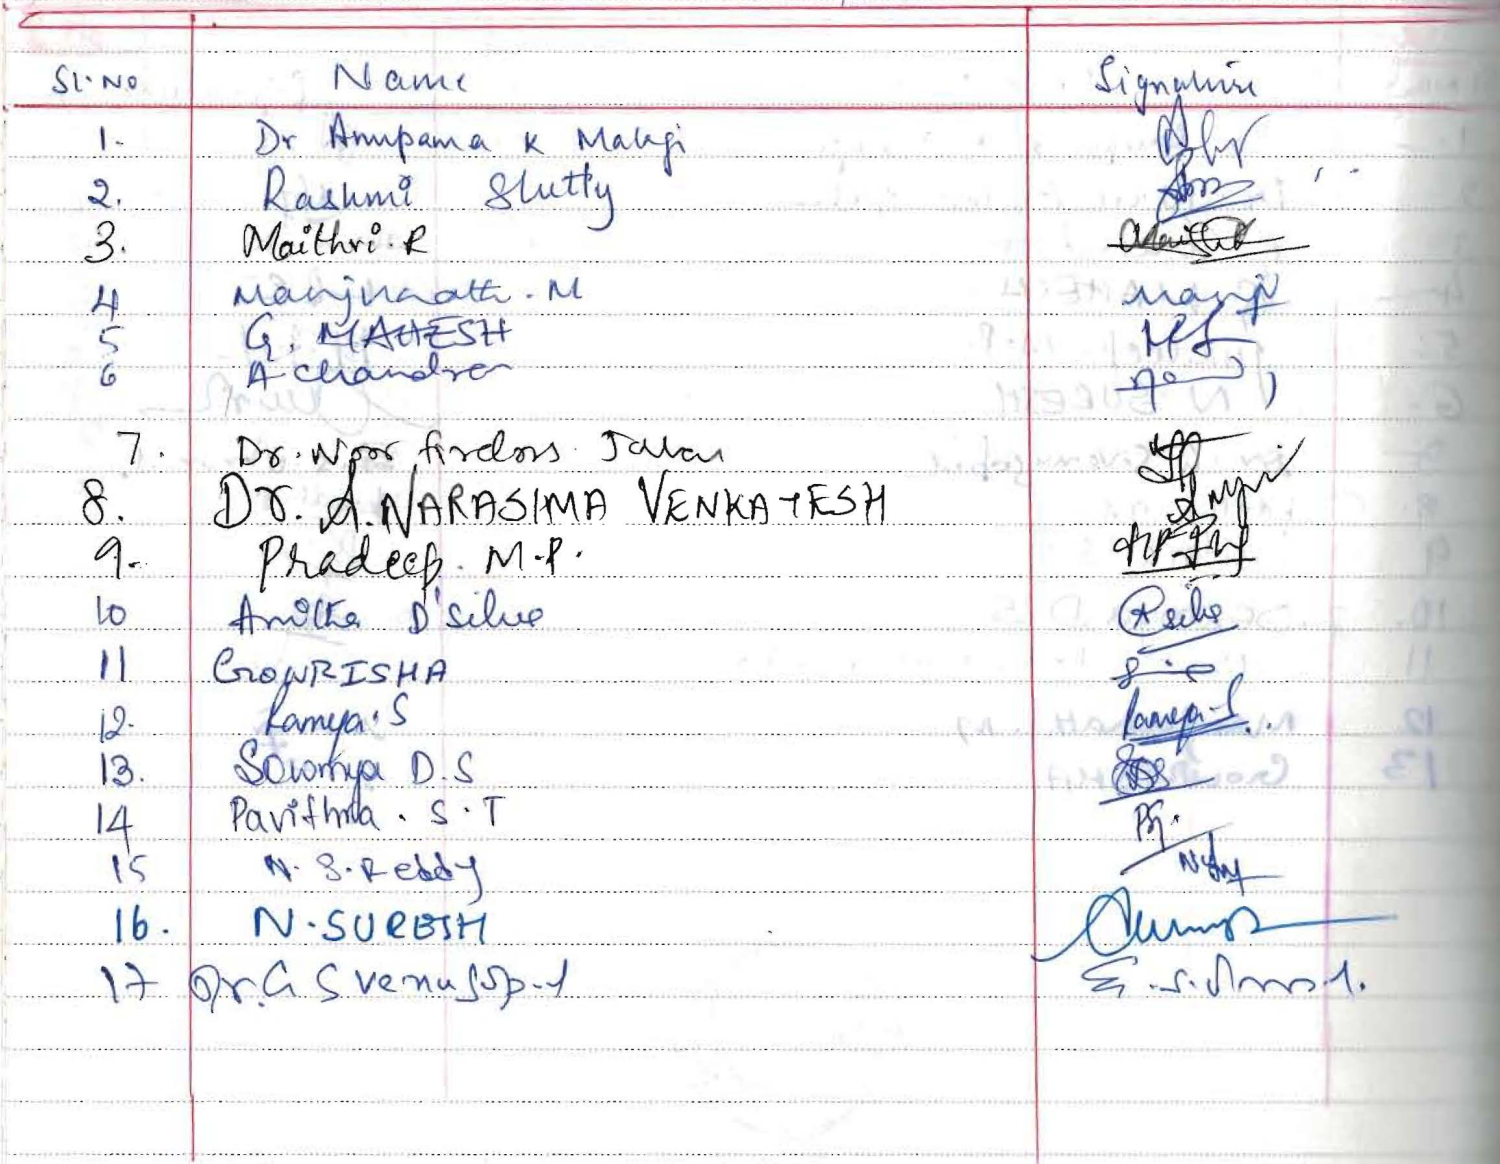 Sl. No Name Signature
1. Dr Anupama K Malagi
2. Rashmi Shetty
3. Maithri. R Maithri
4 Manjunaath. M Manju
5 G. MAHESH
6 A chandra
7. Dr. Noor firdoss
8. Dr. A. NARASIMA VENKATESH
9. Pradeep. M.P.
10 Anitha D'silva
11 GOWRISHA
12. Ramya. S Ramya. S
13. Sowmya D.S
14 Pavithra. S. T
15 N. S. Reddy
16. N. SURESH
17 Dr. G S Venugopal